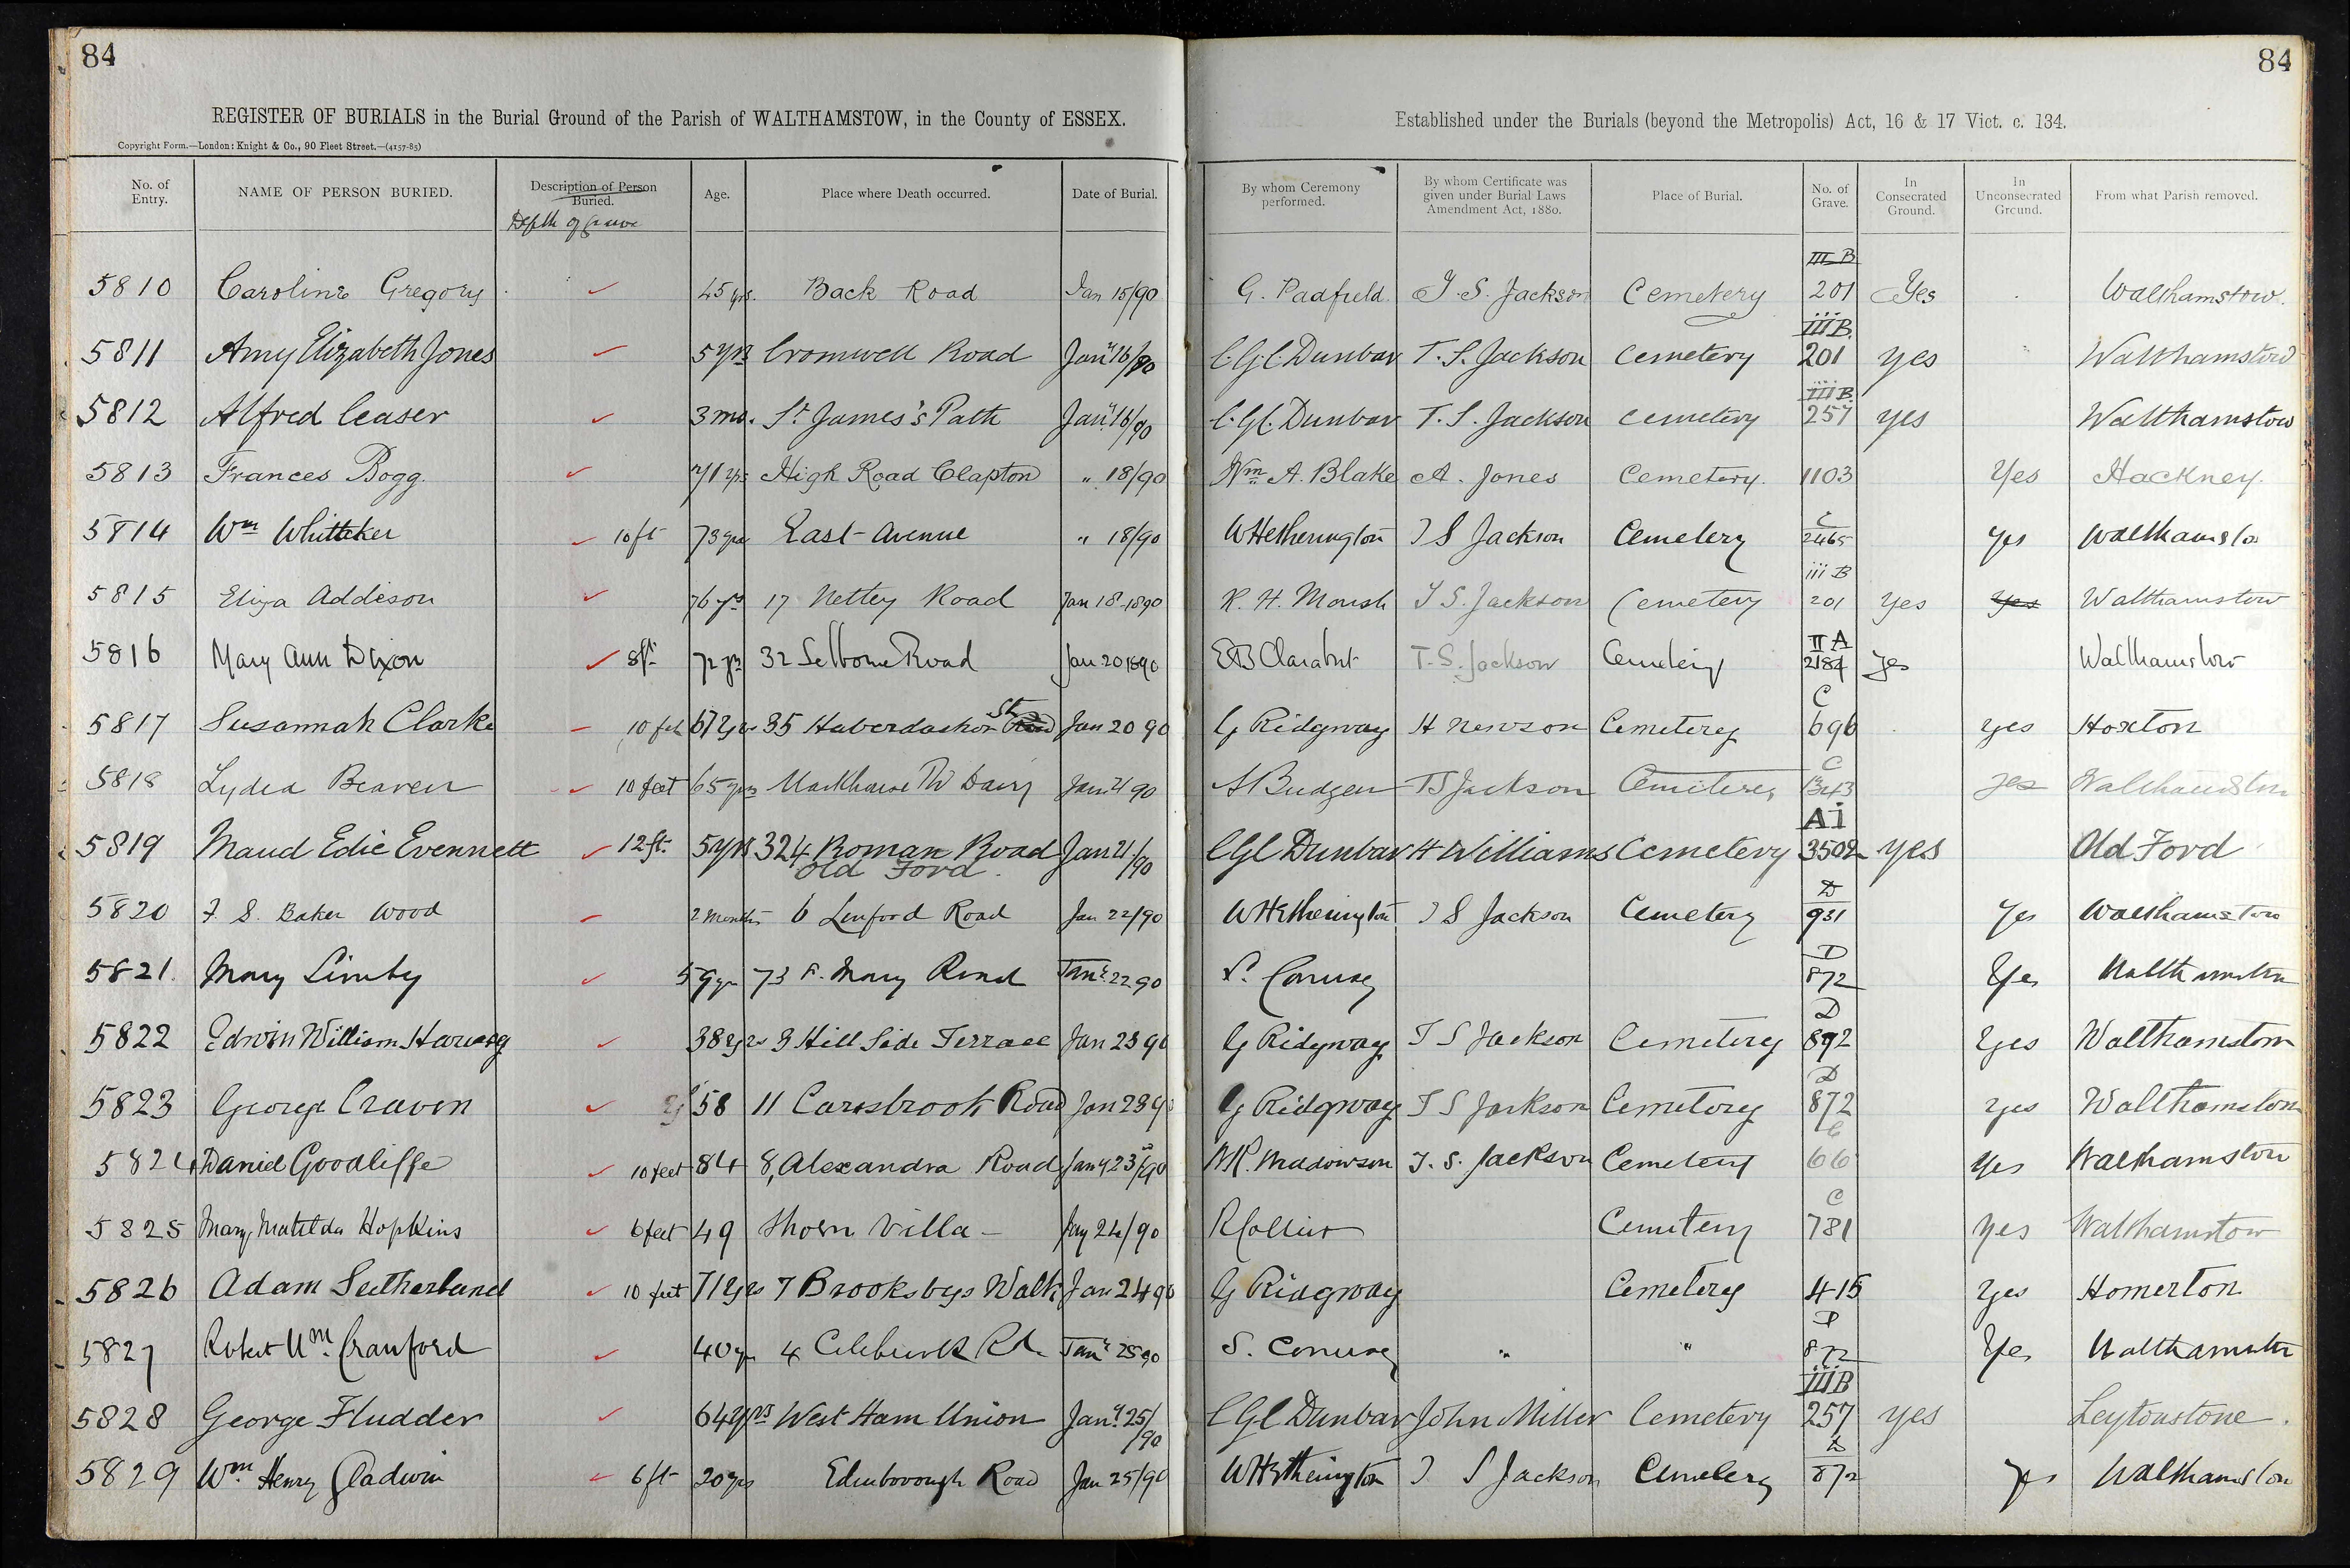 84
84
REGISTER OF BURIALS in the Burial Ground of the Parish of WALTHAMSTOW, in the County of ESSEX.
Established under the Burials (beyond the Metropolis) Act, 16 & 17 Vict. c. 134.
Copyright Form.—London: Knight & Co., 90 Fleet Street.—(4157-85)
No. of Entry. NAME OF PERSON BURIED. Description of Person Buried. Age. Place where Death occurred. Date of Burial. By whom Ceremony performed. By whom Certificate was given under Burial Laws Amendment Act, 1880. Place of Burial. No. of Grave. In Consecrated Ground. In Unconsecrated Ground. From what Parish removed.
Depth of Grave
5810 Caroline Gregory 45 yrs. Back Road Jan 15/90 G. Padfield. T. S. Jackson Cemetery III B 201 Yes Walthamstow.
5811 Amy Elizabeth Jones 5 yrs Cromwell Road Jany 16/90 C.G.C. Dunbar T. S. Jackson Cemetery iii B. 201 yes Walthamstow
5812 Alfred Ceaser 3 mo. St James's Path Jany 16/90 C.G.C. Dunbar T. S. Jackson Cemetery iii B. 257 yes Walthamstow
5813 Frances Bogg. 71 yrs High Road Clapton " 18/90 Wm A. Blake A. Jones Cemetery. 1103 Yes Hackney.
5814 Wm Whittaker 10 ft 73 yrs East Avenue " 18/90 W Hetherington T S Jackson Cemetery C 2465 yes Walthamsto
5815 Eliza Addison 76 yrs 17 Netley Road Jan 18-1890 R. H. Marsh T S. Jackson Cemetery iii B 201 Yes Yes Walthamstow
5816 Mary Ann Dixon 8ft 72 yrs 32 Selborne Road Jan 20 1890 T. S. Jackson Cemetery II A 2184 yes Walthamstow
5817 Susannah Clarke 10 feet 67 yrs 35 Haberdasher St Road Jan 20 90 G Ridgway H Newson Cemetery C 696 yes Hoxton
5818 Lydia Beaven 10 feet 65 yrs Markhouse Rd Dairy Jan 21 90 A Budgen T S Jackson Cemetery C 1343 yes Walthamstow
5819 Maud Edie Evennett 12 ft. 5 yrs 324 Roman Road Old Ford. Jan 21/90 C G C Dunbar H Williams Cemetery A i 3502 yes Old Ford
5820 F. S. Baker Wood 2 months 6 Linford Road Jan 22/90 W Hetherington T S Jackson Cemetery D 931 Yes Walthamstow
5821. Mary Limby 59 yrs 73 St. Mary Road Jany 22 90 S. Conway D 872 Yes Walthamstow
5822 Edwin William 38 yrs 3 Hill Side Terrace Jan 23 90 G Ridgway T S Jackson Cemetery D 892 Yes Walthamstow
5823 George Craven 58 11 Carisbrook Road Jan 23 90 G Ridgway T S Jackson Cemetery D 872 yes Walthamstow
5824 Daniel Goodliffe 10 feet 84 8, Alexandra Road Jany 23/90 T. S. Jackson Cemetery C 66 Yes Walthamstow
5825 Mary Matilda Hopkins 6 feet 49 Thorn Villa – Jany 24/90 R Collier Cemetery C 781 yes Walthamstow
5826 Adam Sutherland 10 feet 71 yrs 7 Brooksbys Walk Jan 24 90 G Ridgway Cemetery 415 yes Homerton
5827 Robert Wm. Cranford 40 yrs 4 Rd. Jany 25 90 S. Conway " " D 872 Yes Walthamstow
5828 George Fludder 64 yrs West Ham Union Jany 25/90 C G C Dunbar John Miller Cemetery iii B 257 yes Leytonstone.
5829 Wm. Henry Gladwin 6 ft 20 yrs Edinborough Road Jan 25/90 W Hetherington T S Jackson Cemetery D 872 Yes Walthamstow